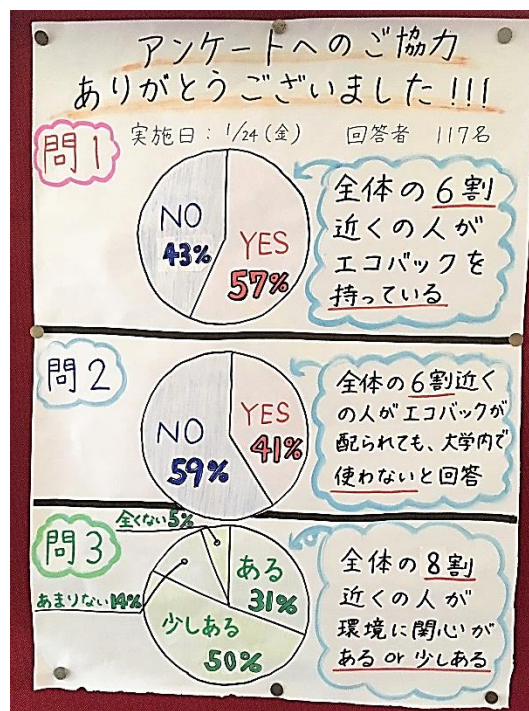 アンケートへのご協力
ありがとうございました!!!
実施日:1/24(金) 回答者 117名
問1
NO
43%
YES
57%
全体の6割
近くの人が
エコバックを
持っている
問2
NO
59%
YES
41%
全体の6割近く
の人がエコバックが
配られても、大学内で
使わないと回答
問3
全くない5%
あまりない14%
ある
31%
少しある
50%
全体の8割
近くの人が
環境に関心が
ある or 少しある